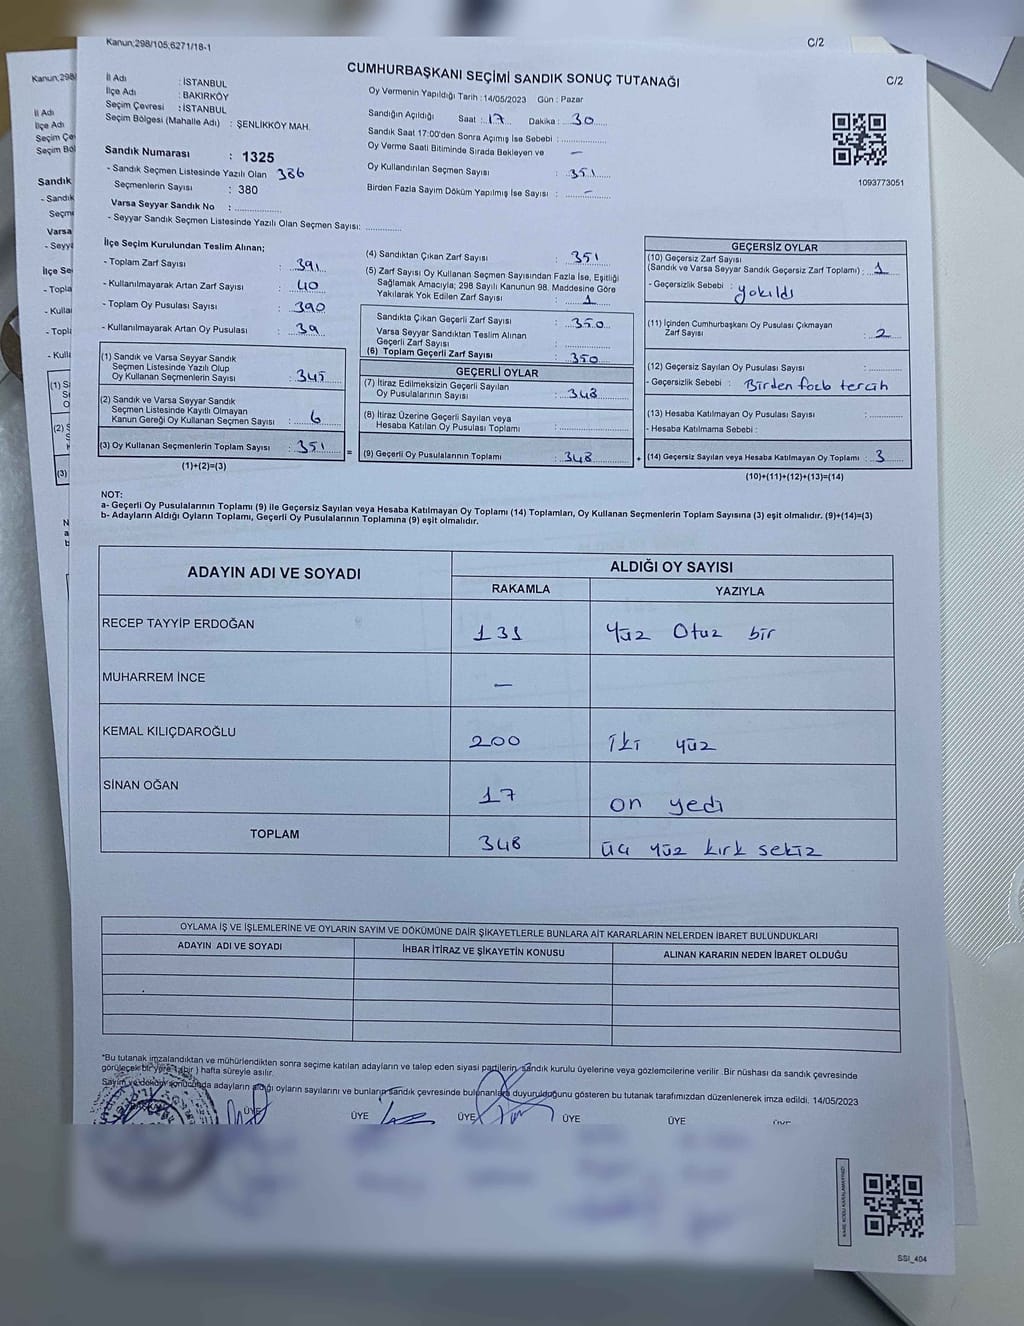 Kanun;298/105;6271/18-1
C/2
Kanun;298/
C/2
CUMHURBAŞKANI SEÇİMİ SANDIK SONUÇ TUTANAĞI
İl Adı : İSTANBUL
İlçe Adı : BAKIRKÖY
Seçim Çevresi : İSTANBUL
Seçim Bölgesi (Mahalle Adı) : ŞENLİKKÖY MAH.
Oy Vermenin Yapıldığı Tarih : 14/05/2023 Gün : Pazar
Sandığın Açıldığı Saat : 17 Dakika : 30
Sandık Saat 17:00'den Sonra Açımış İse Sebebi :
Oy Verme Saati Bitiminde Sırada Bekleyen ve —
Oy Kullandırılan Seçmen Sayısı : 351
Birden Fazla Sayım Döküm Yapılmış İse Sayısı : -
1093773051
Sandık Numarası : 1325
- Sandık Seçmen Listesinde Yazılı Olan 386
Seçmenlerin Sayısı : 380
Varsa Seyyar Sandık No :
- Seyyar Sandık Seçmen Listesinde Yazılı Olan Seçmen Sayısı:
İlçe Seçim Kurulundan Teslim Alınan;
- Toplam Zarf Sayısı : 391
- Kullanılmayarak Artan Zarf Sayısı : 40
- Toplam Oy Pusulası Sayısı : 390
- Kullanılmayarak Artan Oy Pusulası : 39
(1) Sandık ve Varsa Seyyar Sandık
Seçmen Listesinde Yazılı Olup
Oy Kullanan Seçmenlerin Sayısı : 345
(2) Sandık ve Varsa Seyyar Sandık
Seçmen Listesinde Kayıtlı Olmayan
Kanun Gereği Oy Kullanan Seçmen Sayısı : 6
(3) Oy Kullanan Seçmenlerin Toplam Sayısı : 351
(1)+(2)=(3)
=
(4) Sandıktan Çıkan Zarf Sayısı : 351
(5) Zarf Sayısı Oy Kullanan Seçmen Sayısından Fazla İse, Eşitliği
Sağlamak Amacıyla; 298 Sayılı Kanunun 98. Maddesine Göre
Yakılarak Yok Edilen Zarf Sayısı : 1
Sandıkta Çıkan Geçerli Zarf Sayısı : 350
Varsa Seyyar Sandıktan Teslim Alınan
Geçerli Zarf Sayısı :
(6) Toplam Geçerli Zarf Sayısı : 350
GEÇERLİ OYLAR
(7) İtiraz Edilmeksizin Geçerli Sayılan
Oy Pusulalarının Sayısı : 348
(8) İtiraz Üzerine Geçerli Sayılan veya
Hesaba Katılan Oy Pusulası Toplamı :
(9) Geçerli Oy Pusulalarının Toplamı : 348
+
GEÇERSİZ OYLAR
(10) Geçersiz Zarf Sayısı
(Sandık ve Varsa Seyyar Sandık Geçersiz Zarf Toplamı) : 1
- Geçersizlik Sebebi : yakıldı
(11) İçinden Cumhurbaşkanı Oy Pusulası Çıkmayan
Zarf Sayısı : 2
(12) Geçersiz Sayılan Oy Pusulası Sayısı :
- Geçersizlik Sebebi : Birden fazla tercih
(13) Hesaba Katılmayan Oy Pusulası Sayısı :
- Hesaba Katılmama Sebebi :
(14) Geçersiz Sayılan veya Hesaba Katılmayan Oy Toplamı : 3
(10)+(11)+(12)+(13)=(14)
NOT:
a- Geçerli Oy Pusulalarının Toplamı (9) ile Geçersiz Sayılan veya Hesaba Katılmayan Oy Toplamı (14) Toplamları, Oy Kullanan Seçmenlerin Toplam Sayısına (3) eşit olmalıdır. (9)+(14)=(3)
b- Adayların Aldığı Oyların Toplamı, Geçerli Oy Pusulalarının Toplamına (9) eşit olmalıdır.
ADAYIN ADI VE SOYADI
ALDIĞI OY SAYISI
RAKAMLA YAZIYLA
RECEP TAYYİP ERDOĞAN 131 Yüz Otuz bir
MUHARREM İNCE —
KEMAL KILIÇDAROĞLU 200 iki yüz
SİNAN OĞAN 17 on yedi
TOPLAM 348 üç yüz kırk sekiz
OYLAMA İŞ VE İŞLEMLERİNE VE OYLARIN SAYIM VE DÖKÜMÜNE DAİR ŞİKAYETLERLE BUNLARA AİT KARARLARIN NELERDEN İBARET BULUNDUKLARI
ADAYIN ADI VE SOYADI İHBAR İTİRAZ VE ŞİKAYETİN KONUSU ALINAN KARARIN NEDEN İBARET OLDUĞU
*Bu tutanak imzalandıktan ve mühürlendikten sonra seçime katılan adayların ve talep eden siyasi partilerin, sandık kurulu üyelerine veya gözlemcilerine verilir .Bir nüshası da sandık çevresinde
görülecek bir yere 1 (bir ) hafta süreyle asılır.
Sayım ve döküm sonucunda adayların aldığı oyların sayılarını ve bunların sandık çevresinde bulunanlara duyurulduğunu gösteren bu tutanak tarafımızdan düzenlenerek imza edildi. 14/05/2023
ÜYE ÜYE ÜYE ÜYE ÜYE
SSI_404